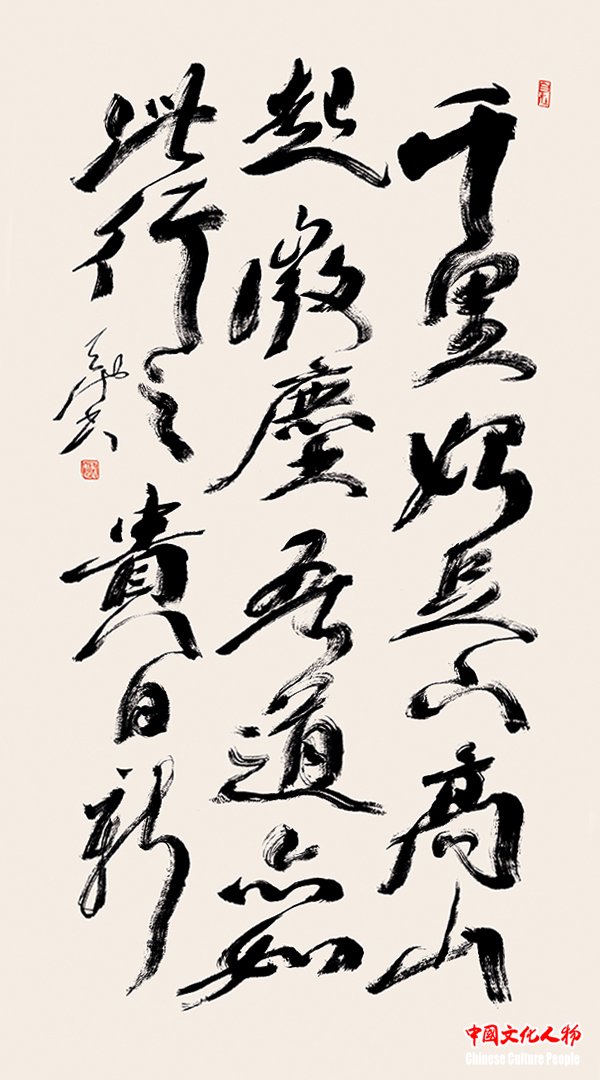 千里始足下高山
起微塵吾道亦如
此行之貴日新
中國文化人物
Chinese Culture People